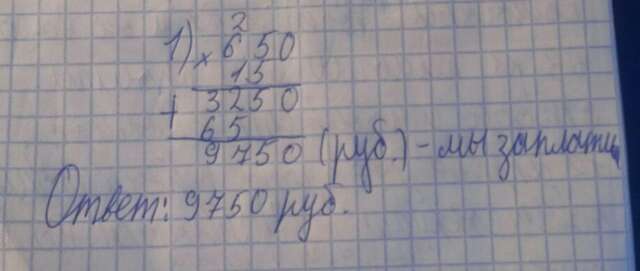 2
1) × 650
15
+ 3250
65
9750 (руб.) - мы заплати
Ответ: 9750 руб.